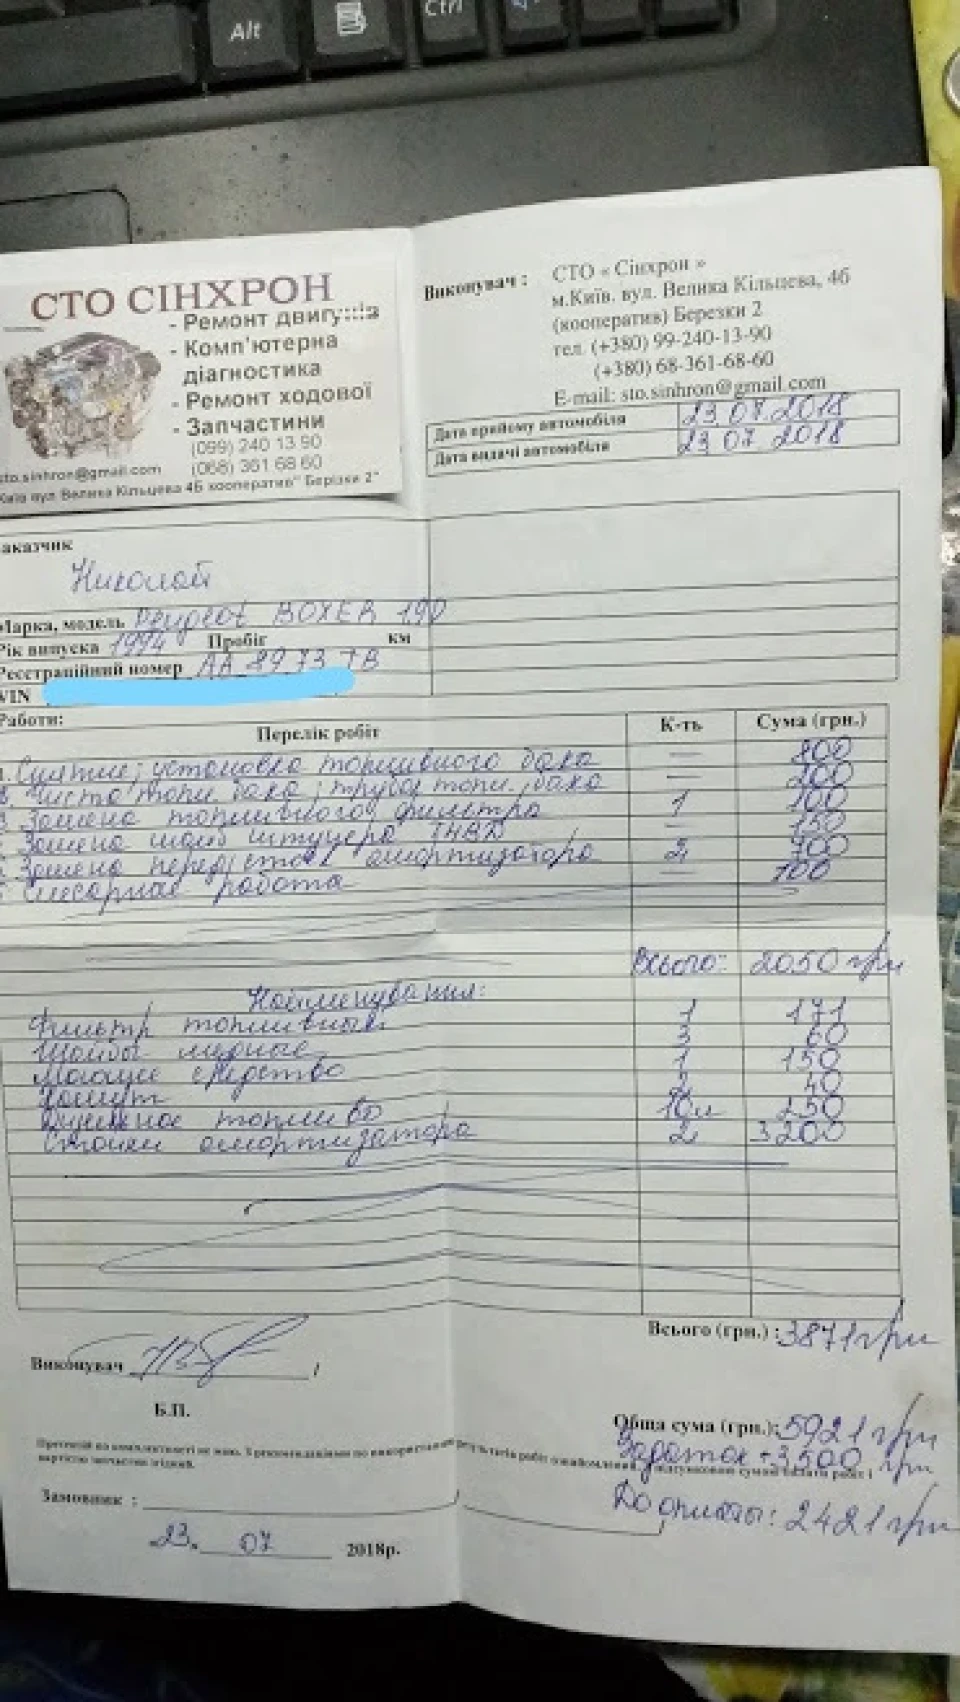 Alt
Ctrl
СТО СІНХРОН
- Ремонт двигунів
- Комп'ютерна
діагностика
- Ремонт ходової
- Запчастини
(099) 240 13 90
(068) 361 68 60
sto.sinhron@gmail.com
Київ вул Велика Кільцева 4Б кооператив" Берізки 2"
Виконувач :
СТО « Сінхрон »
м.Київ. вул. Велика Кільцева, 4б
(кооператив) Березки 2
тел. (+380) 99-240-13-90
(+380) 68-361-68-60
E-mail: sto.sinhron@gmail.com
Дата прийому автомобіля 23.07.2018
Дата видачі автомобіля 23 07. 2018
Заказчик
Николай
Марка, модель Peugeot BOXER 190
Рік випуска 1994 Пробіг км
Реєстраційний номер АА 8973 ТВ
VIN
Работи:
Перелік робіт К-ть Сума (грн.)
1. Снятие; установка топливного бака — 800
2. Чистка топл. бака; трубок топл. бака — 200
3. Замена топливного фильтра 1 100
Замена шайб штуцера ТНВД — 150
Замена передн. стоек амортизатора 2 700
Слесарная работа — 100
Всього: 2050 грн
Найменування:
Фильтр топливный 1 171
Шайбы медные 3 60
Моющее средство 1 150
Хомут 2 40
Дизельное топливо 10л 250
Стойки амортизатора 2 3200
Всього (грн.) : 3871 грн
Виконувач
Б.П.
Обща сума (грн.): 5921 грн
Задаток - 3500 грн
Претензій по комплектності не маю. З рекомендаціями по використанню результатів робіт ознайомлений,
вартістю запчастин згідний.
Замовник :
До оплаты: 2421 грн
23. 07 2018р.